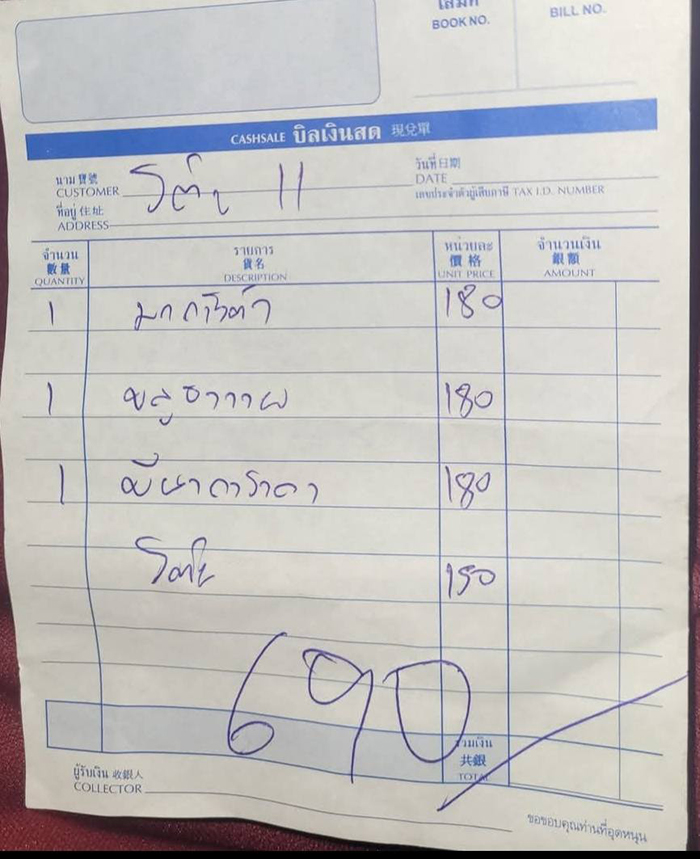 เล่มที่
BOOK NO.
BILL NO.
CASHSALE บิลเงินสด 現兌單
นาม 寶號
CUSTOMER
โต๊ะ 11
วันที่ 日期
DATE
ที่อยู่ 住址
ADDRESS
เลขประจำตัวผู้เสียภาษี TAX I.D. NUMBER
จำนวน 數量 QUANTITY
รายการ 貨名 DESCRIPTION
หน่วยละ 價格 UNIT PRICE
จำนวนเงิน 銀額 AMOUNT
1 มาการิต้า 180
1 บลูฮาวาย 180
1 พีน่าโคลาดา 180
150
690
รวมเงิน
共銀
TOTAL
ผู้รับเงิน 收銀人
COLLECTOR
ขอขอบคุณท่านที่อุดหนุน